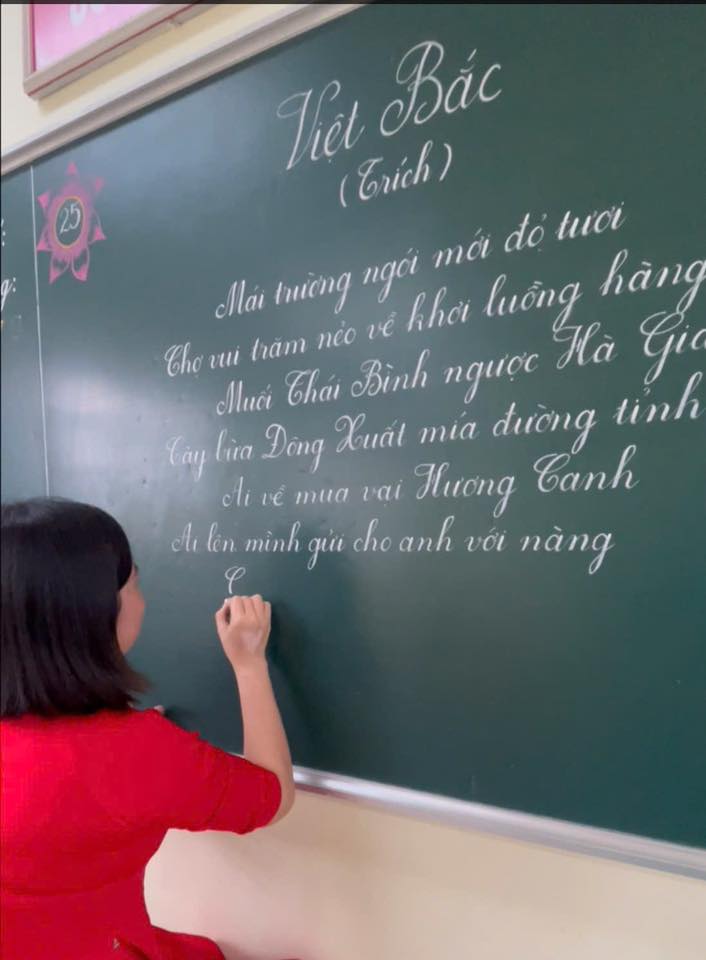 Việt Bắc
(Trích)
25
Mái trường ngói mới đỏ tươi
Chợ vui trăm nẻo về khơi luồng hàng
Muối Thái Bình ngược Hà Gia
Cày bừa Đông Xuất mía đường tỉnh
Ai về mua vại Hương Canh
Ai lên mình gửi cho anh với nàng
C